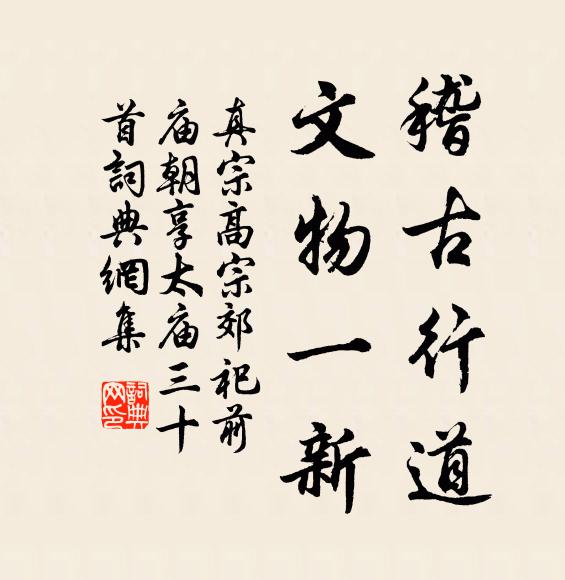 稽古行道
文物一新
真宗高宗郊祀前
庙朝享太庙三十
首詞典網集
詞典
网印